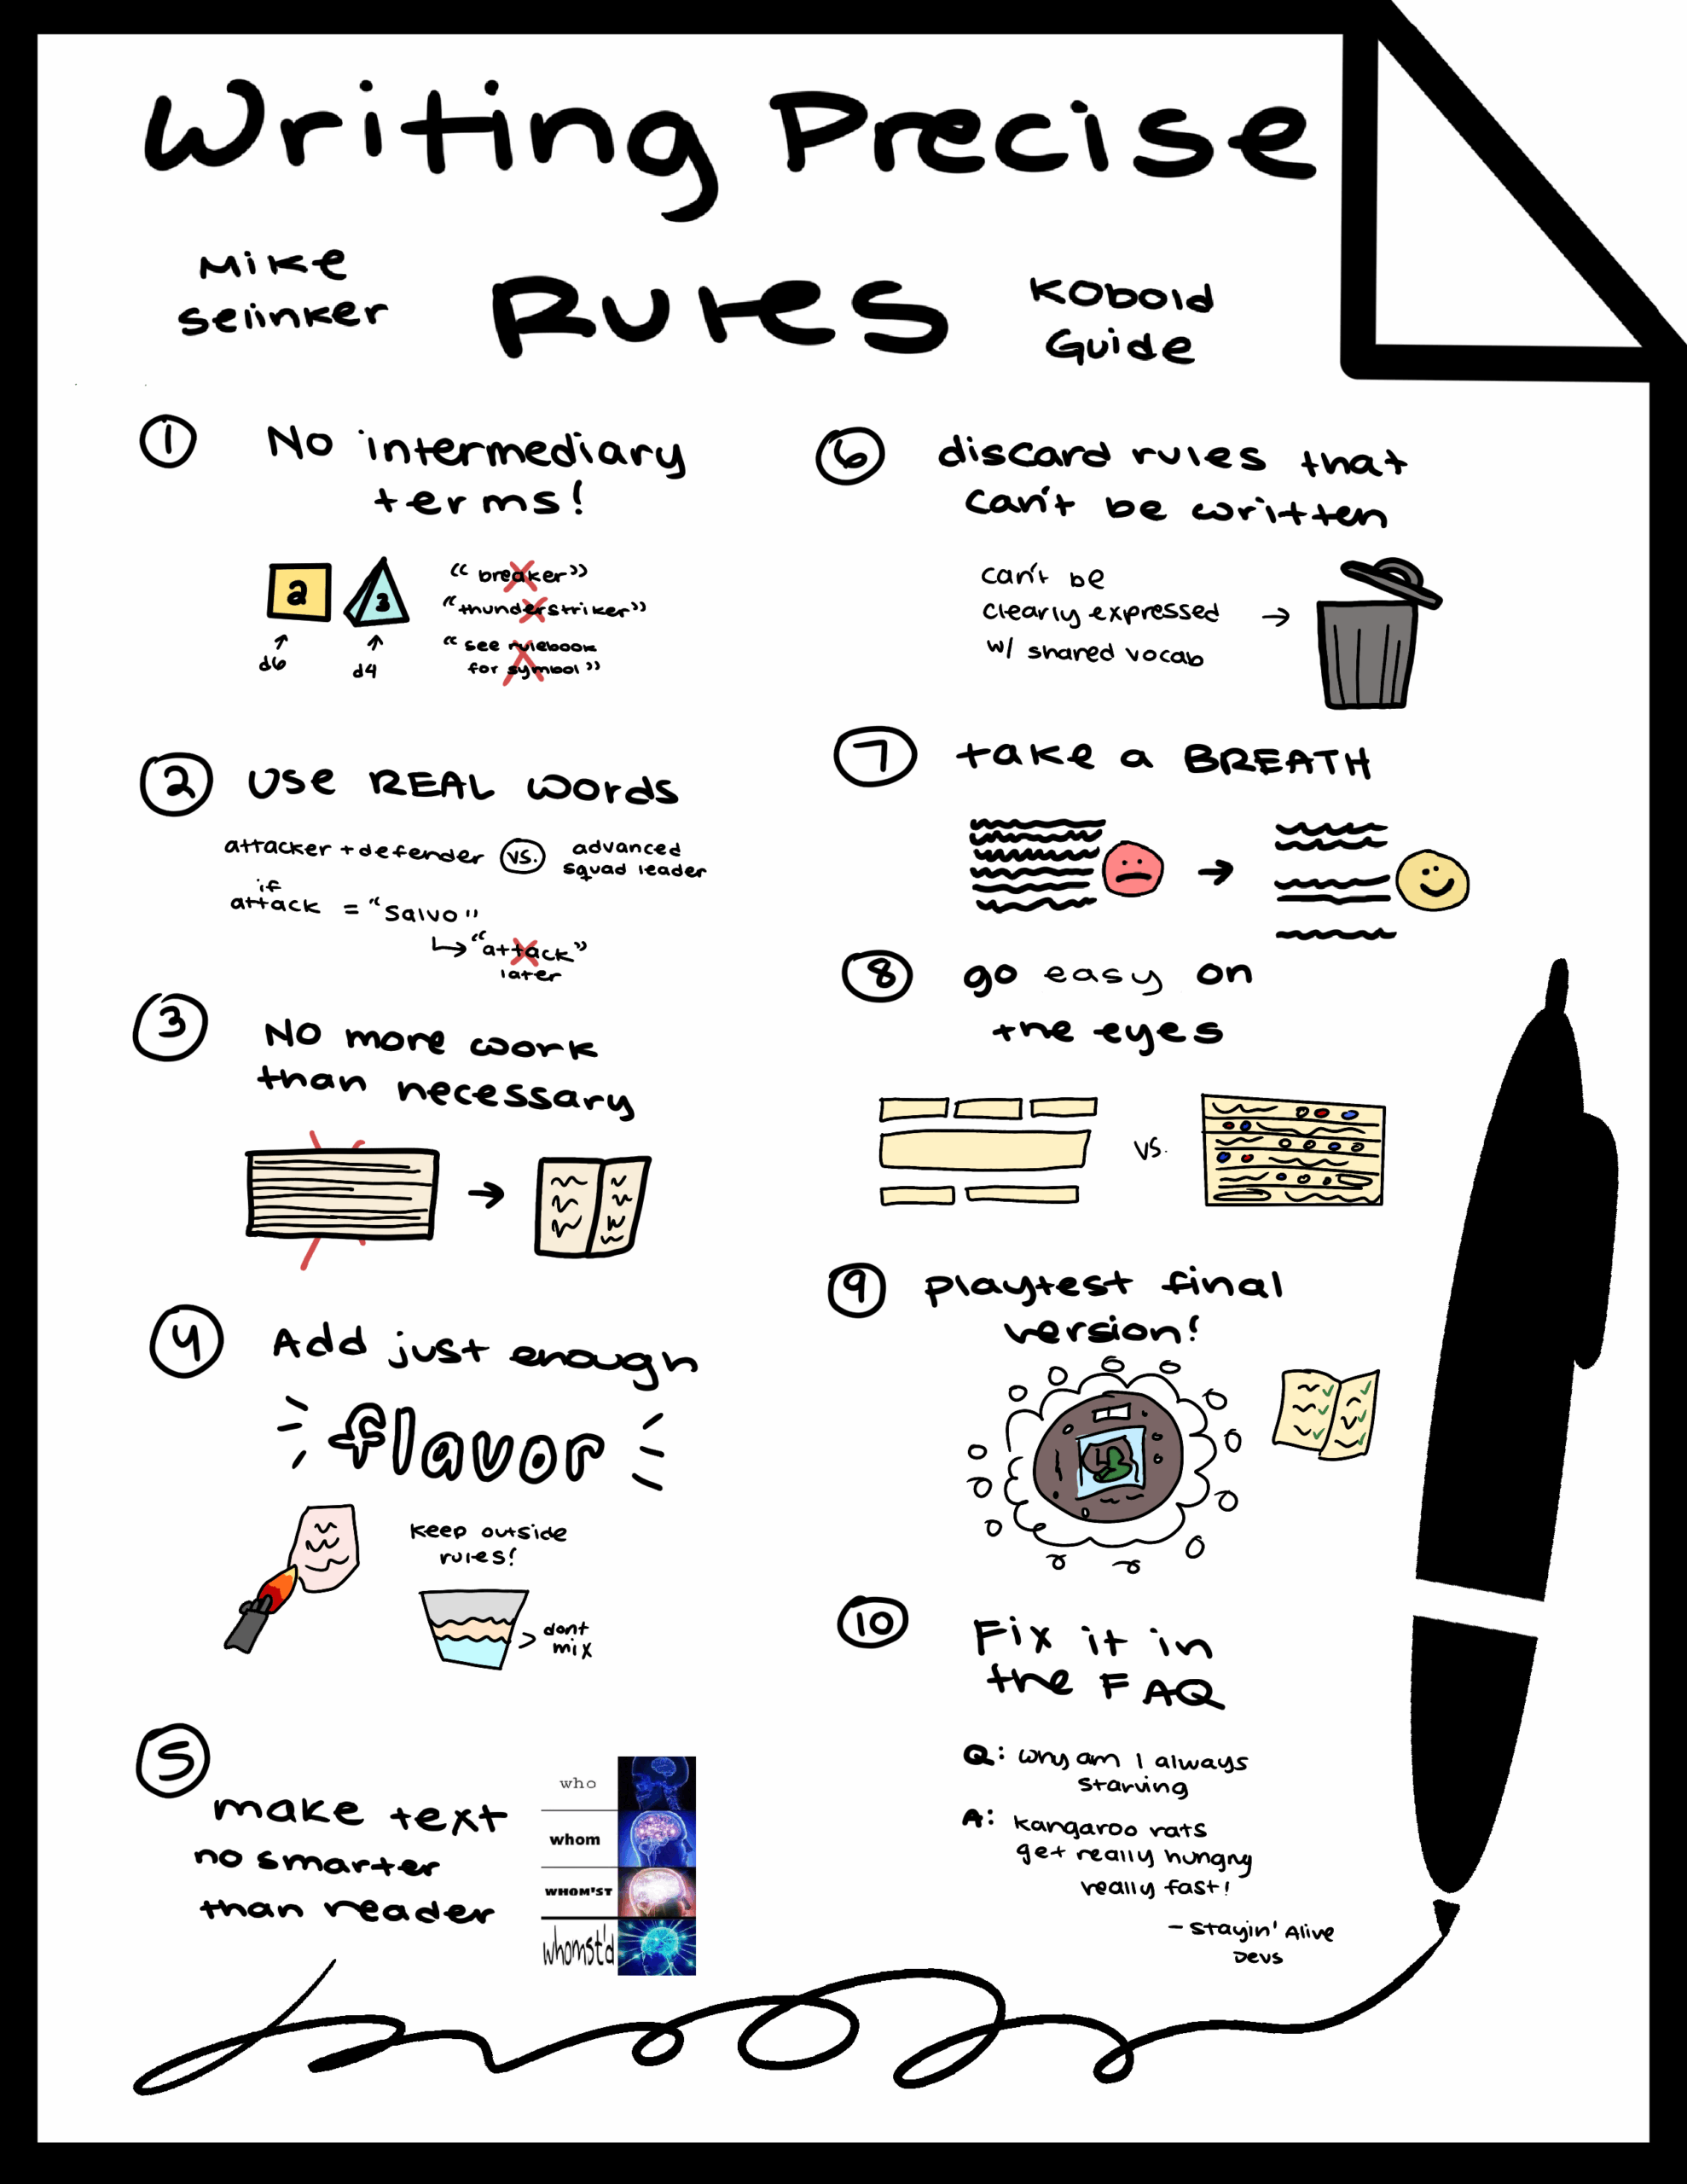 Writing Precise
Rules
Mike
Selinker
Kobold
Guide
1 No intermediary
terms!
2 3
d6 d4
"breaker"
"thunderstriker"
"see rulebook
for symbol"
2 Use REAL words
attacker + defender vs. advanced
squad leader
if
attack = "Salvo"
"attack"
later
3 No more work
than necessary
4 Add just enough
flavor
keep outside
rules!
dont
mix
5
make text
no smarter
than reader
who
whom
WHOM'ST
whomst'd
6 discard rules that
can't be written
can't be
clearly expressed
w/ shared vocab
7 take a BREATH
8 go easy on
the eyes
vs.
9 playtest final
version!
10 Fix it in
the FAQ
Q: why am I always
starving
A: kangaroo rats
get really hungry
really fast!
- Stayin' Alive
Devs